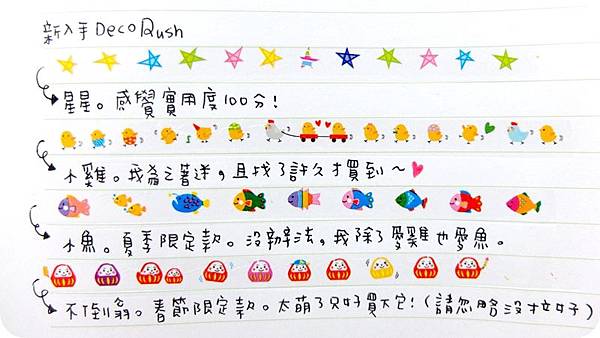 新入手 Deco Rush
星星。感覺實用度100分!
小雞。我為之著迷,且找了許久才買到~
小魚。夏季限定款。沒辦法,我除了愛雞也愛魚。
不倒翁。春節限定款。太萌了只好買下它!(請忽略沒拉好)